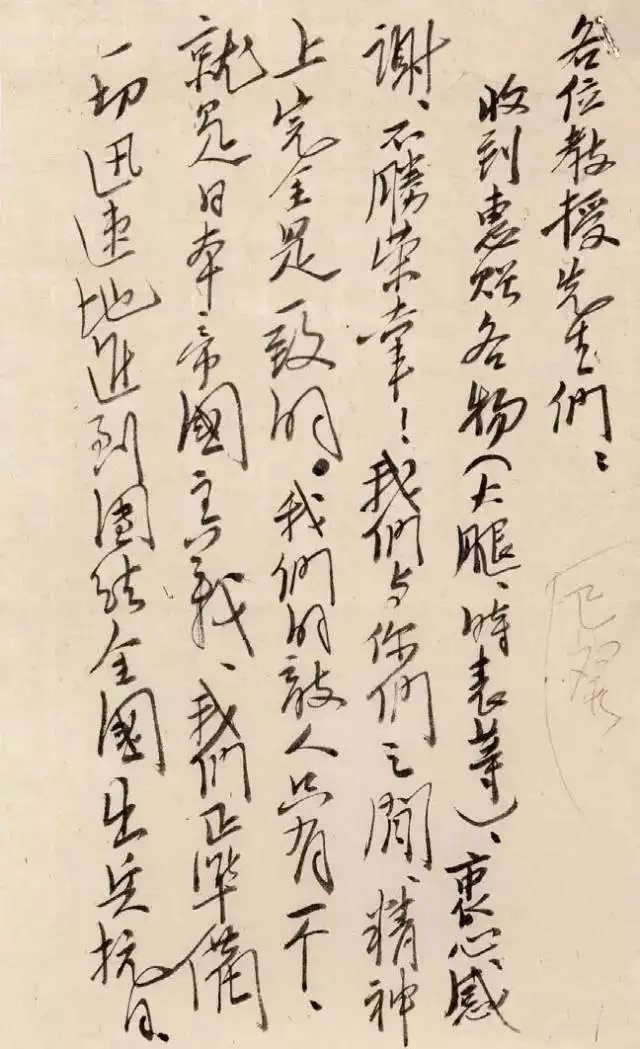 各位教授先生們：
收到惠贈各物（火腿、時表等）、衷心感
謝、不勝荣幸！我們与你們之間、精神
上完全是一致的。我們的敵人只有一个、
就是日本帝國主義、我們正準備
一切迅速地進到團結全國出兵抗日、